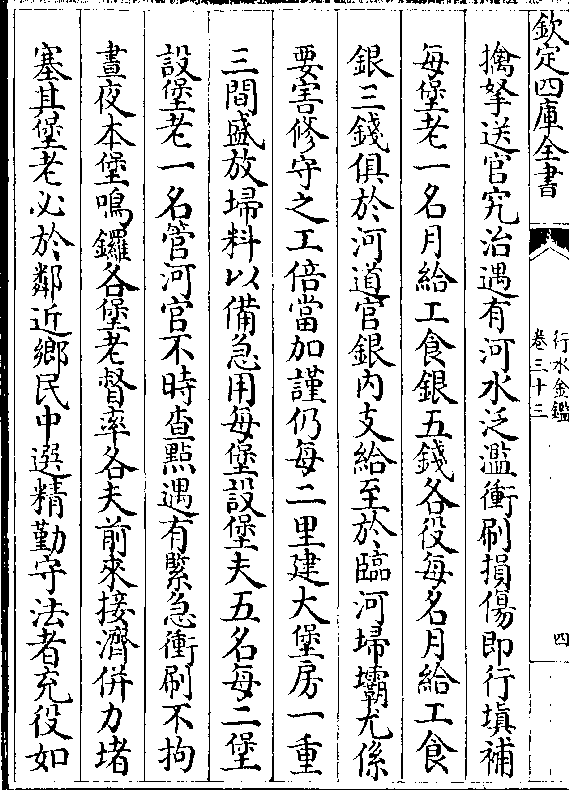 欽定四庫全書
行水金鑑
卷三十三
四
擒拏送官究治遇有河水泛濫衝刷損傷即行填補
每堡老一名月給工食銀五錢各役每名月給工食
銀三錢俱於河道官銀内支給至於臨河埽壩尤係
要害修守之工倍當加謹仍每二里建大堡房一重
三間盛放埽料以備急用每堡設堡夫五名每二堡
設堡老一名管河官不時查點遇有緊急衝刷不拘
晝夜本堡鳴鑼各堡老督率各夫前來接濟併力堵
塞其堡老必於鄰近鄉民中選精勤守法者充役如